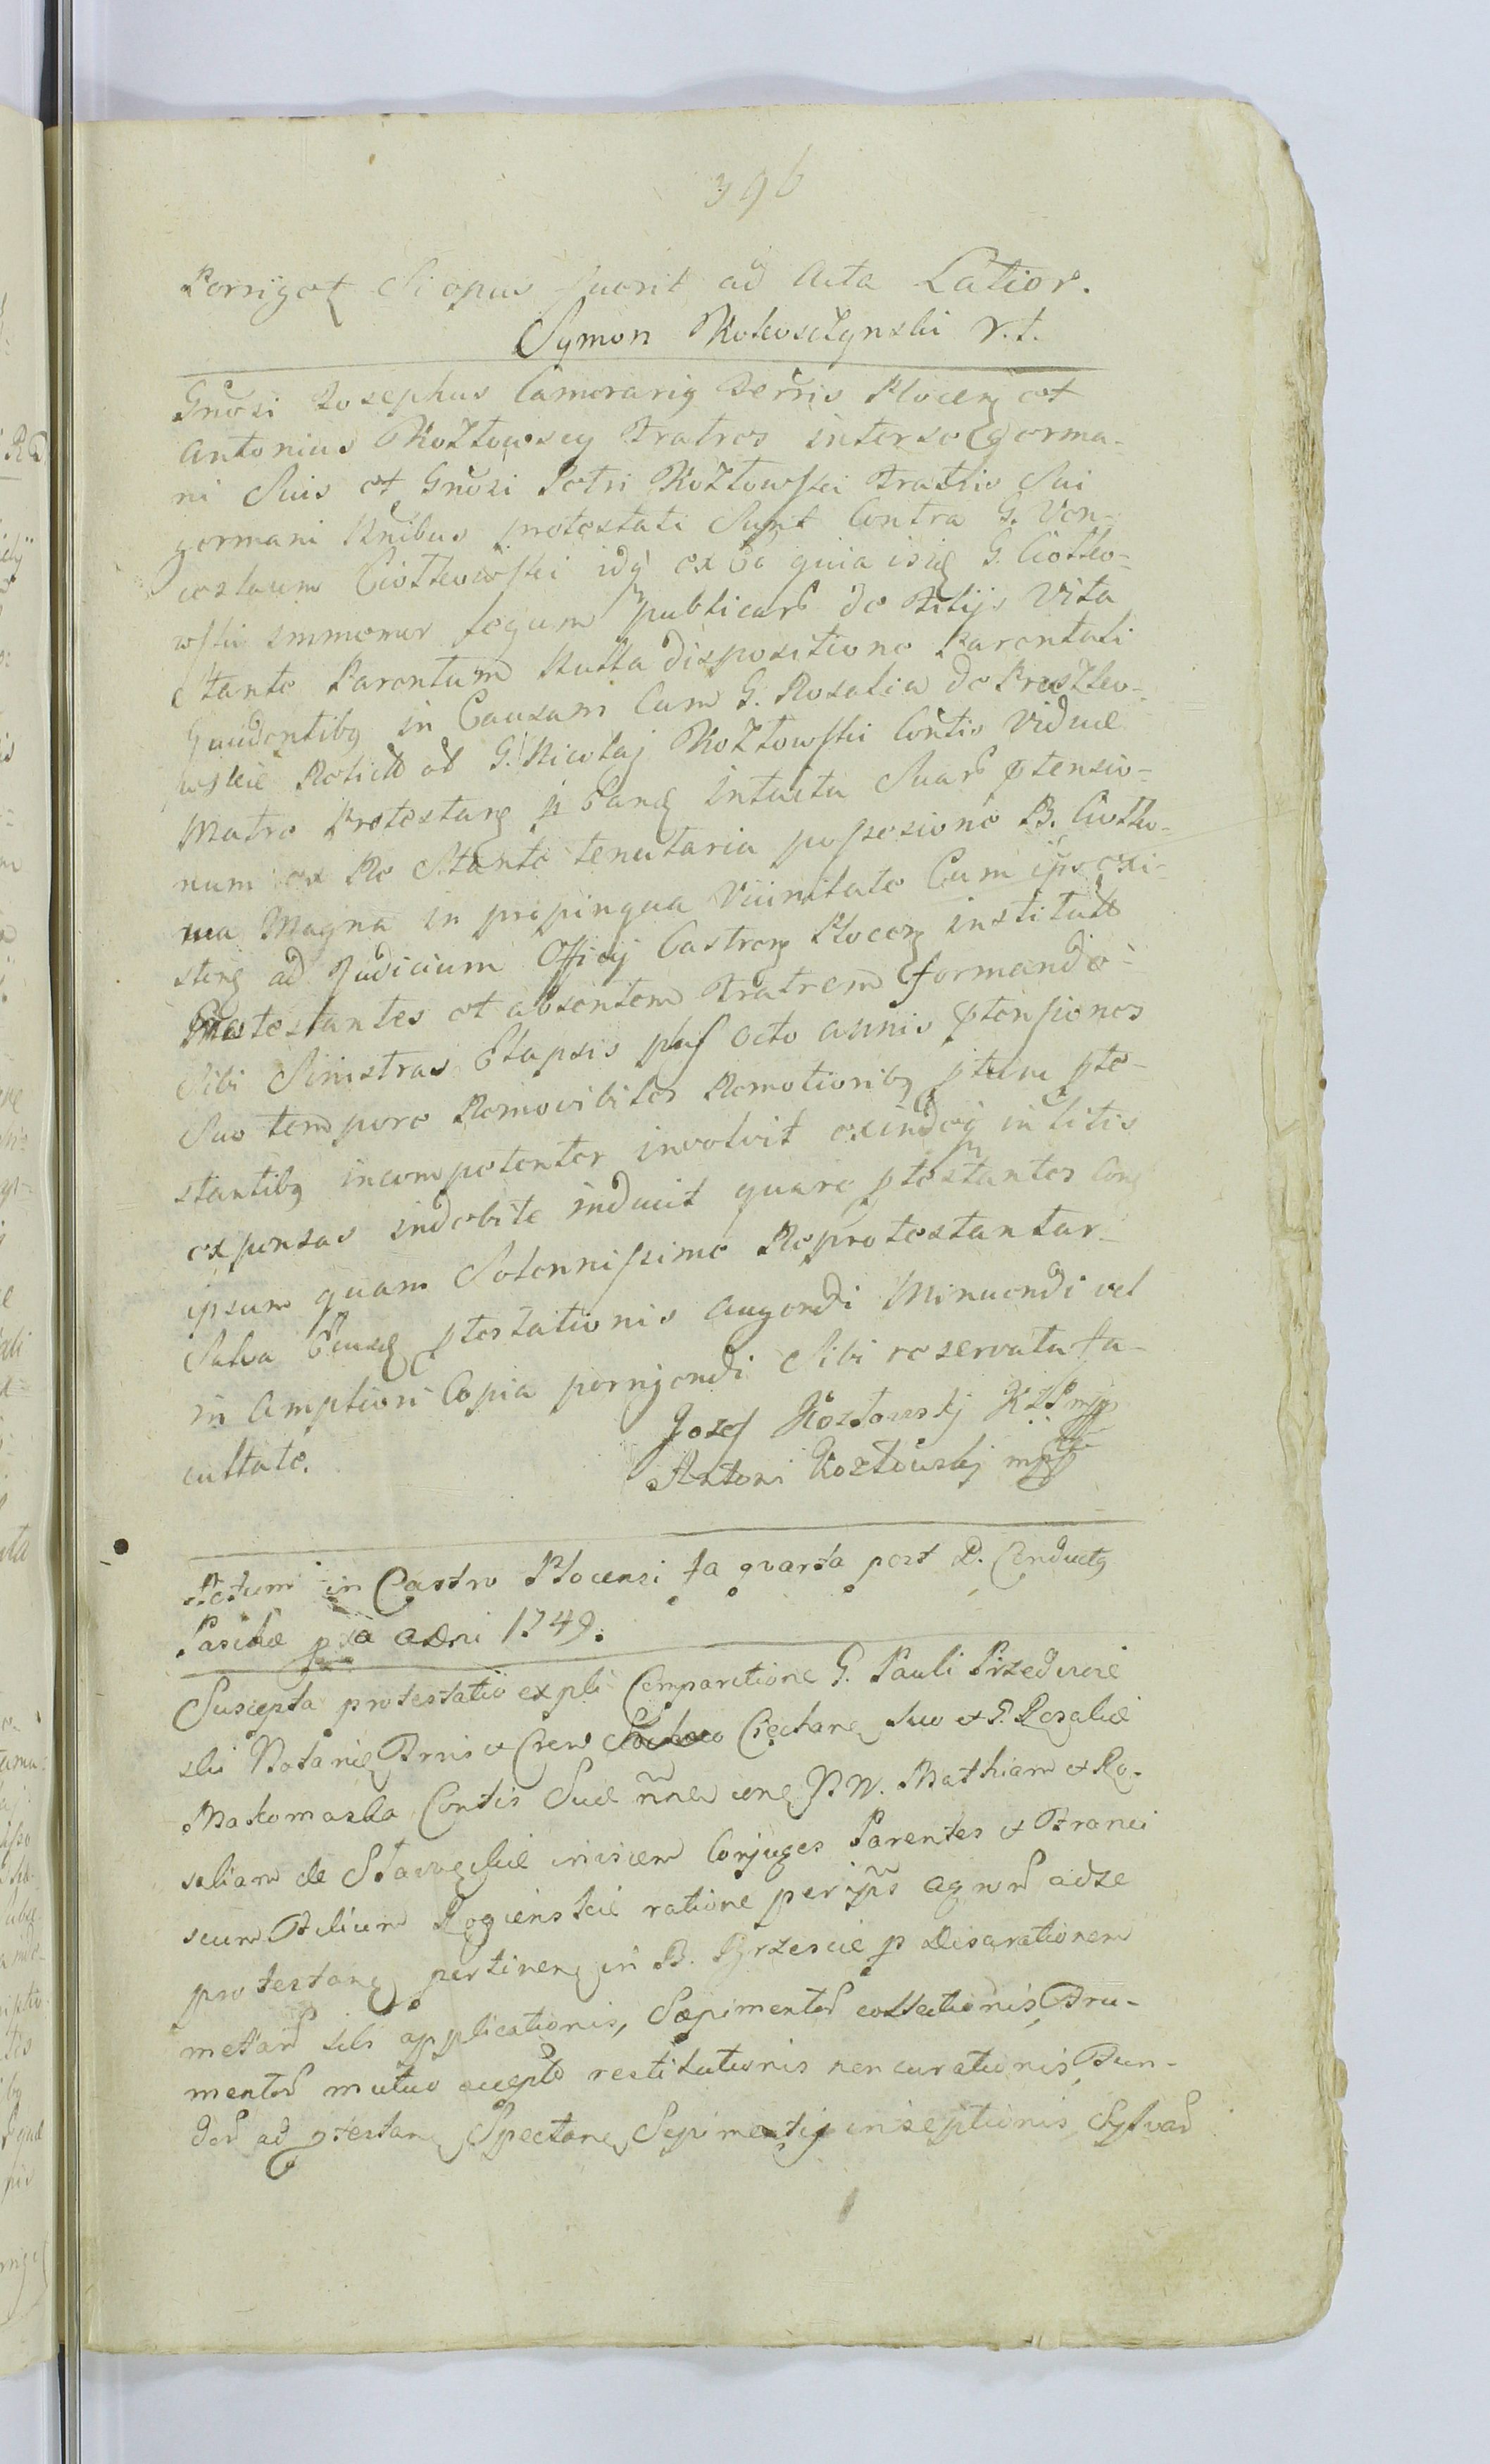 396
Porriget Si opus fuerit ad Acta Latior.
Symon Kokoszczynski V.t.
Gnosi Josephus Camerarig Terris Plocen et
Antonius Kozłowscy Fratres interse germa-
ni Suis et Gnosi Petri Kozłowski Fratris Sui
germani Nnibus protestati Sunt Contra G. Ven-
ceslaum Ciołkowski idq ex eo quia isde G. Ciołko-
wski immemor Legum publicar de Filijs Vita
Stante Parentum Nulla dispositione Parentali
Gaudentibg in Causam Cum G. Rosalia de
Relicta ol G. Nicolaj Kozłowski Cortis Vidua
Matre Protestang p eang Intuitu Suar ptensio-
num ex Re Stante tenutaria possesione B. Ciołko-
wa Magna in propinqua Viinitate Cum ipso exi-
steng ad Judicium Officij Castren Plocen institutt
Protestantes et absentem Fratrem formando
Sibi Sinistras Elapsis plus octo annis ptensiones
Suo tempore Removibiles Remotionibg ptum pte-
stantibg incompetenter involvit exindeq in litis
expensas indebite inducit quare ptestantes Con
ipsum quam Solennissime Reprotestantur
Salva ptestationis augendi Minuendi vel
in Ampliori Copia porrigendi Sibi reservata fa-
cultate.
Jozef Kozłowskj KZP mpp
Antoni Kozłowskj mpp
Actum in Castro Plocensi fa quarta post D. Conductg
Paschæ pxa aDni 1749.
Suscepta protestatio ex pli Comparitione G. Pauli
ski Notarig Trris et Crew Ciechang suo et G. Rosaliæ
Makomaska Contis Suæ nne ceng NN. Mathiam et Ro-
saliam de inivicem Conjuges Parentes et Franci
scum Filium Rogienskie ratione per ipss agror adse
protestang pertineng in B. Brzescie p Disarationem
metar sibi applicationis, Sæpimentor collectionis, Fru-
mentor mutuo accepto restitutionis non curationis,
dor ad ptestang Spectang Sepimentis inseptionis Sylvar